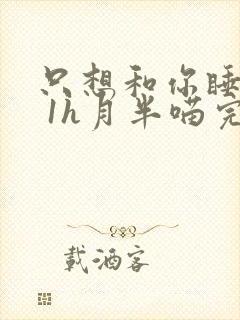 只想和你睡
1h月半喵完
載酒客